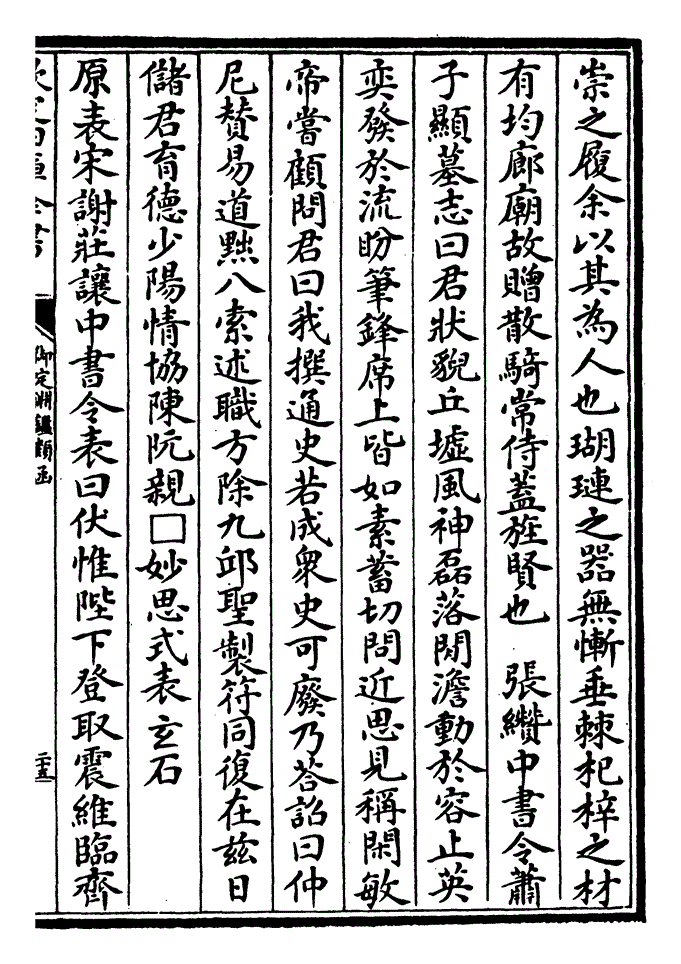 崇之履余以其為人也瑚璉之器無慚垂棘杞梓之材
有均廊廟故贈散騎常侍蓋旌賢也　張纘中書令蕭
子顯墓志曰君狀貌丘墟風神磊落閑澹動於容止英
奕發於流盼筆鋒席上皆如素蓄切問近思見稱閑敏
帝嘗顧問君曰我撰通史若成衆史可廢乃荅詔曰仲
尼賛易道黜八索述職方除九邱聖製符同復在兹日
儲君育德少陽情協陳阮親□妙思式表玄石
原表宋謝莊讓中書令表曰伏惟陛下登取震維臨齊
欽定四庫全書
御定淵鑑類函
二十五